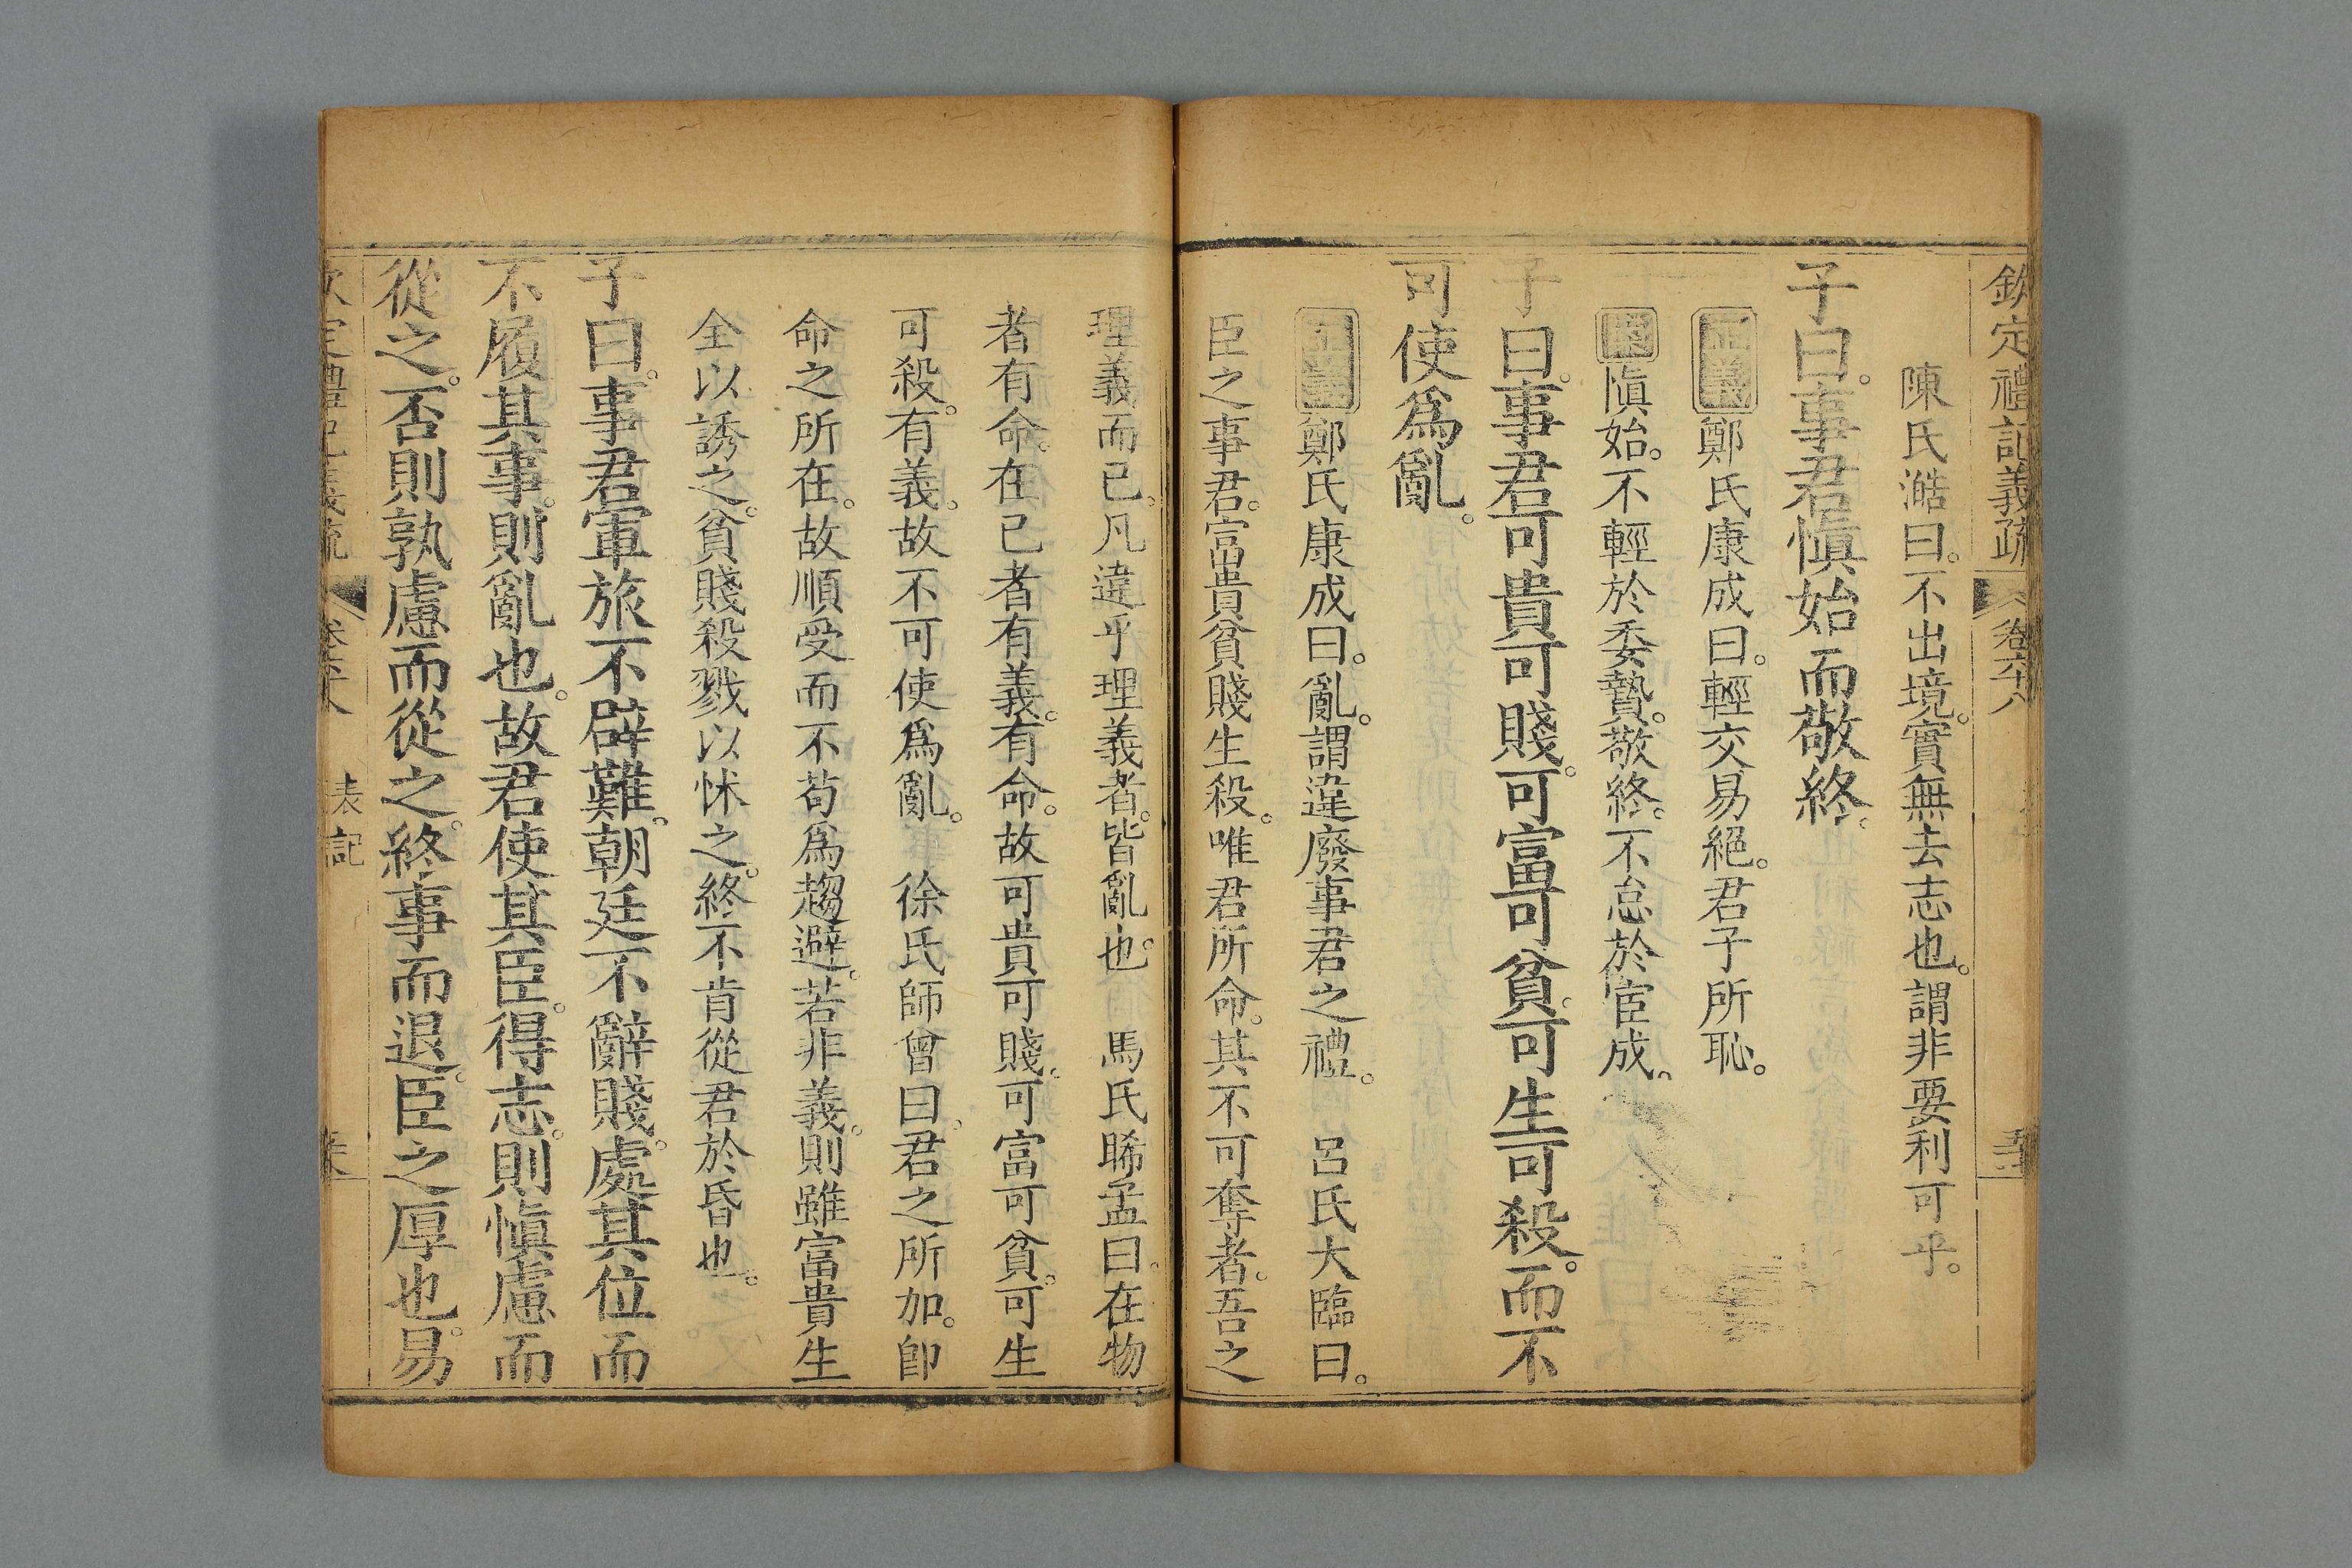 欽定禮記義疏 卷六十八
陳氏澔曰。不出境。實無去志也。謂非要利可乎。
子曰。事君愼始而敬終。
正義 鄭氏康成曰。輕交易絕。君子所恥。
案 愼始。不輕於委贄。敬終。不怠於宦成。
子曰。事君可貴可賤。可富可貧。可生可殺。而不
可使爲亂。
正義 鄭氏康成曰。亂。謂違廢事君之禮。 呂氏大臨曰。
臣之事君。富貴貧賤生殺。唯君所命。其不可奪者。吾之
理義而已。凡違乎理義者。皆亂也。 馬氏睎孟曰。在物
者有命。在已者有義。有命。故可貴可賤。可富可貧。可生
可殺。有義。故不可使爲亂。 徐氏師曾曰。君之所加。卽
命之所在。故順受而不苟爲趨避。若非義。則雖富貴生
全以誘之。貧賤殺戮以怵之。終不肯從君於昏也。
子曰。事君軍旅不辟難。朝廷不辭賤。處其位而
不履其事。則亂也。故君使其臣。得志。則愼慮而
從之。否則孰慮而從之。終事而退。臣之厚也。易
欽定禮記義疏 卷六十八 表記